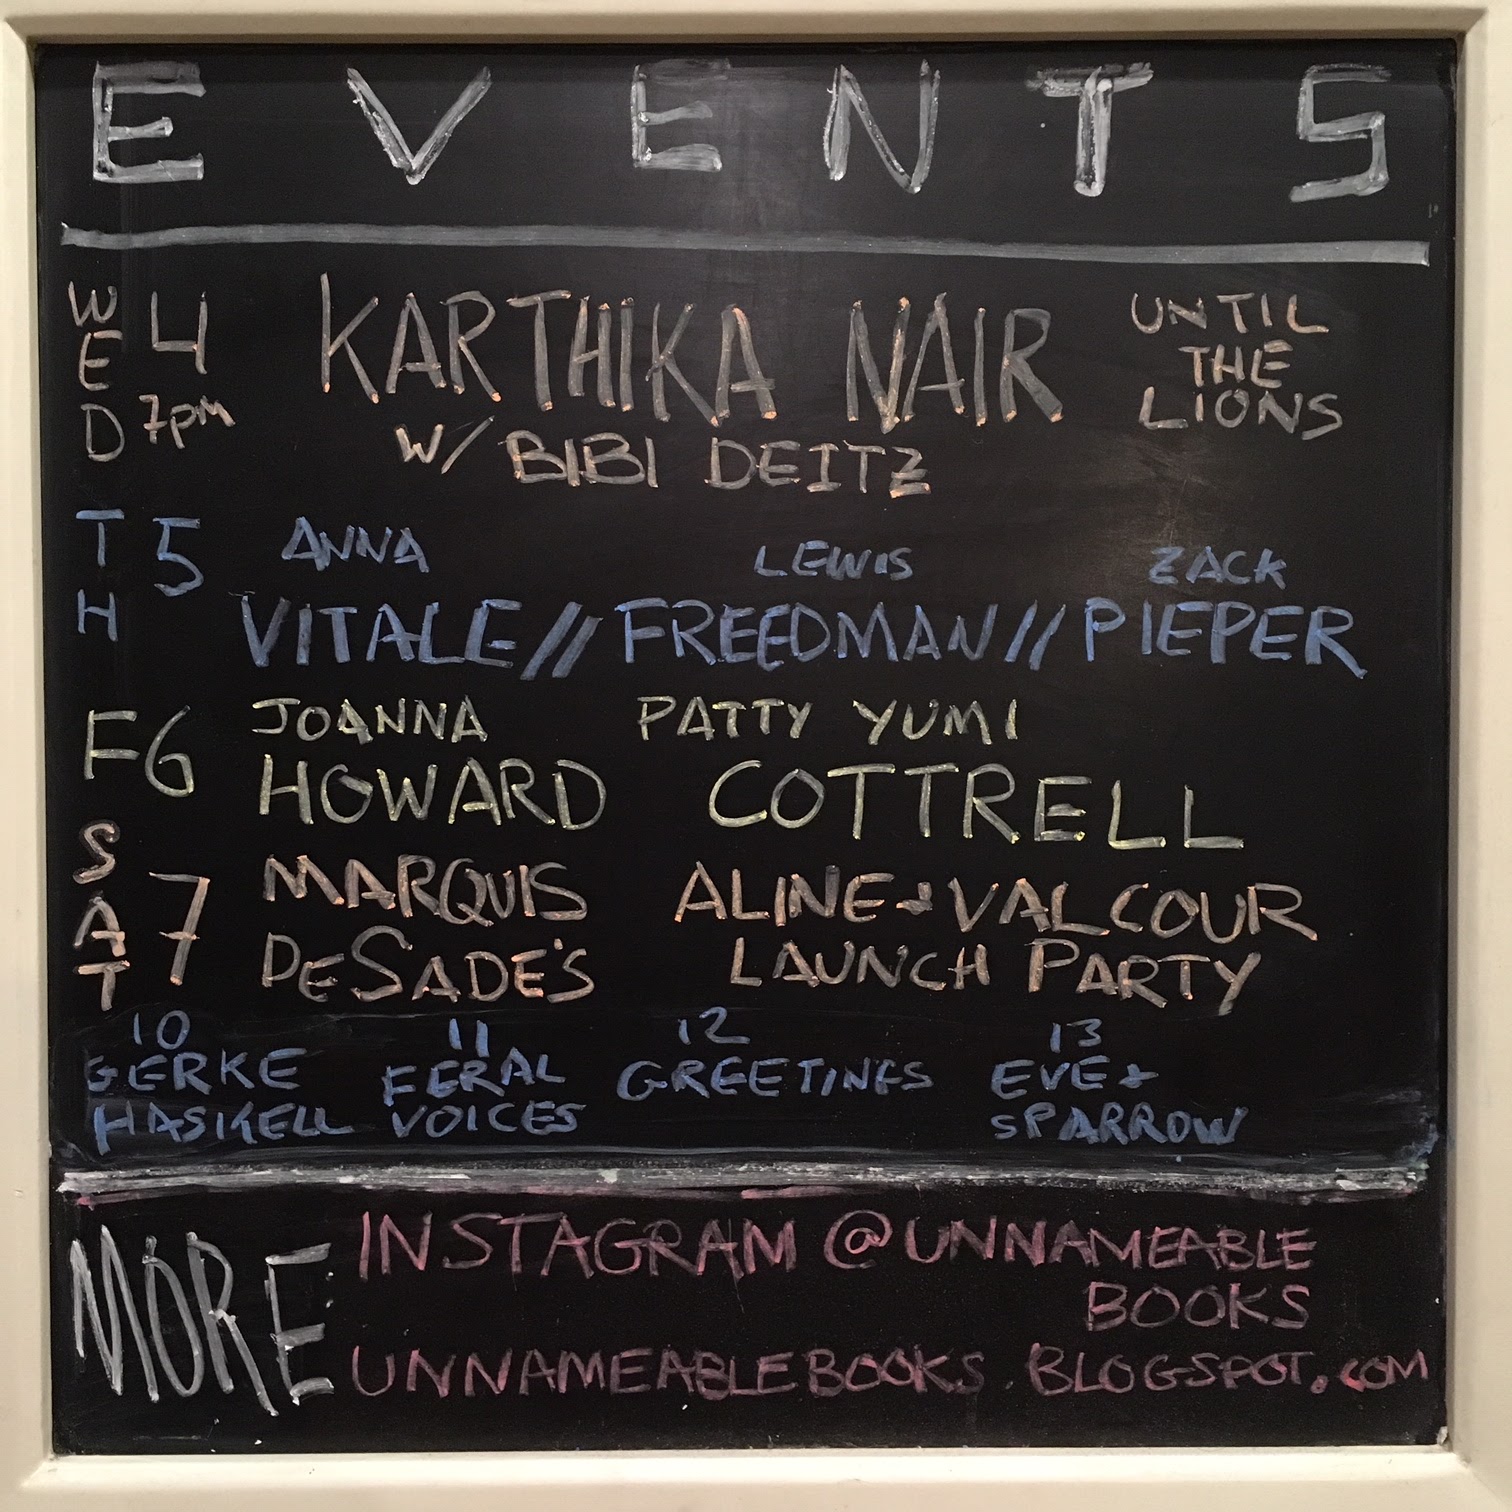 EVENTS
WED 4 7pm KARTHIKA NAIR UNTIL THE LIONS
W/ BIBI DEITZ
TH 5 ANNA LEWIS ZACK
VITALE// FREEDMAN// PIEPER
F6 JOANNA PATTY YUMI
HOWARD COTTRELL
SAT 7 MARQUIS ALINE & VALCOUR
DESADE'S LAUNCH PARTY
10 11 12 13
GERKE FERAL GREETINGS EVE &
HASKELL VOICES SPARROW
MORE INSTAGRAM @UNNAMEABLE
BOOKS
UNNAMEABLEBOOKS.BLOGSPOT.COM